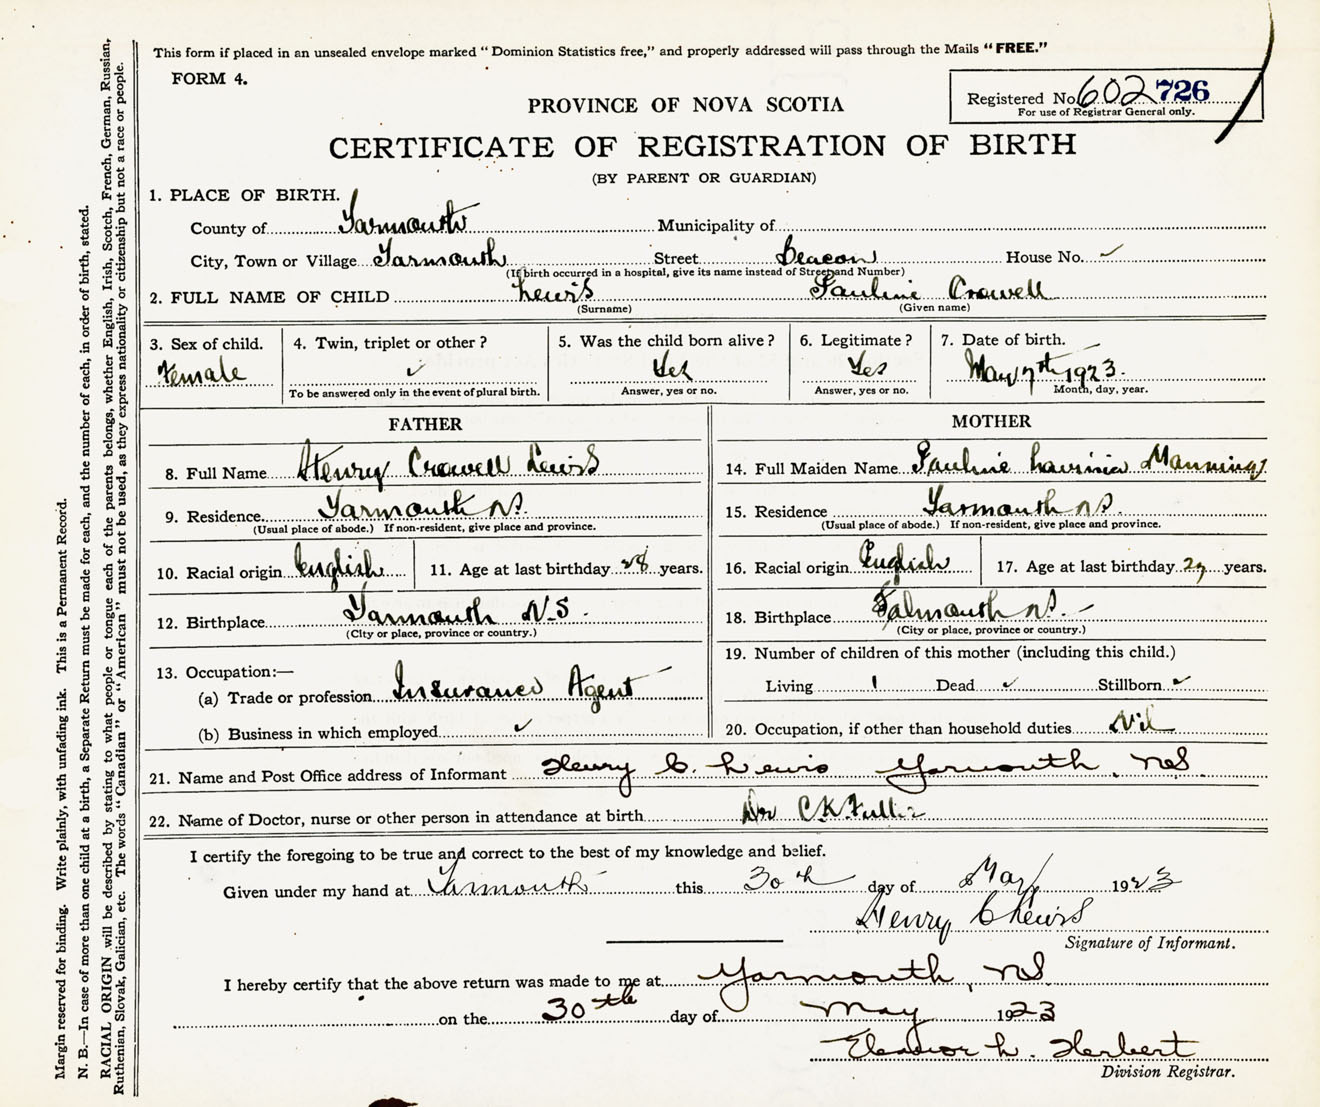 This form if placed in an unsealed envelope marked "Dominion Statistics free," and properly addressed will pass through the Mails "FREE."
FORM 4.
Registered No. 602726
For use of Registrar General only.
PROVINCE OF NOVA SCOTIA
CERTIFICATE OF REGISTRATION OF BIRTH
(BY PARENT OR GUARDIAN)
1. PLACE OF BIRTH.
County of Yarmouth Municipality of
City, Town or Village Yarmouth Street Deacon House No. ✓
(If birth occurred in a hospital, give its name instead of Street and Number)
2. FULL NAME OF CHILD Lewis Pauline Crowell
(Surname) (Given name)
3. Sex of child. Female
4. Twin, triplet or other? ✓
To be answered only in the event of plural birth.
5. Was the child born alive? Yes
Answer, yes or no.
6. Legitimate? Yes
Answer, yes or no.
7. Date of birth. May 7th 1923.
Month, day, year.
FATHER
8. Full Name Henry Crowell Lewis
9. Residence Yarmouth N.S.
(Usual place of abode.) If non-resident, give place and province.
10. Racial origin English 11. Age at last birthday 28 years.
12. Birthplace Yarmouth N.S.
(City or place, province or country.)
13. Occupation:—
(a) Trade or profession Insurance Agent
(b) Business in which employed ✓
MOTHER
14. Full Maiden Name Pauline Lavinia Manning
15. Residence Yarmouth N.S.
(Usual place of abode.) If non-resident, give place and province.
16. Racial origin English 17. Age at last birthday years.
18. Birthplace Falmouth N.S.
(City or place, province or country.)
19. Number of children of this mother (including this child.)
Living 1 Dead ✓ Stillborn ✓
20. Occupation, if other than household duties Nil
21. Name and Post Office address of Informant Henry C. Lewis Yarmouth, N.S.
22. Name of Doctor, nurse or other person in attendance at birth Dr C.K. Fuller
I certify the foregoing to be true and correct to the best of my knowledge and belief.
Given under my hand at Yarmouth this 30th day of May 1923
Henry C Lewis
Signature of Informant.
I hereby certify that the above return was made to me at Yarmouth, N.S.
on the 30th day of May 1923
Eleanor L. Herbert
Division Registrar.
Margin reserved for binding. Write plainly, with unfading ink. This is a Permanent Record.
N. B.—In case of more than one child at a birth, a Separate Return must be made for each, and the number of each, in order of birth, stated.
RACIAL ORIGIN will be described by stating to what people or tongue each of the parents belongs, whether English, Irish, Scotch, French, German, Russian,
Ruthenian, Slovak, Galician, etc. The words "Canadian" or "American" must not be used, as they express nationality or citizenship but not a race or people.